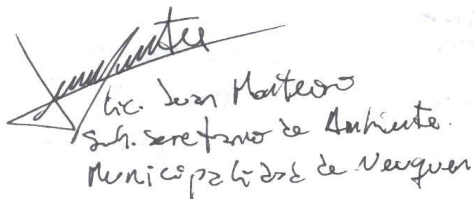 Lic. Juan Monteoro
Sub. Secretario de Ambiente.
Municipalidad de Neuquen